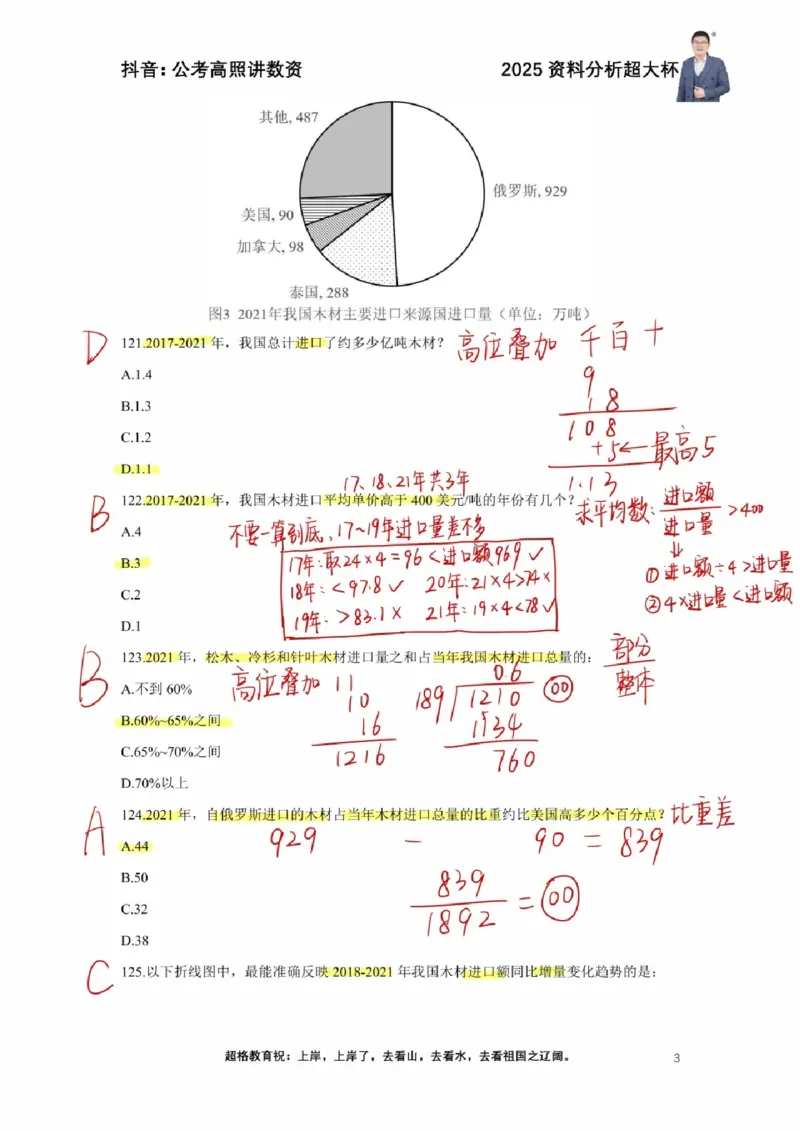 抖音：公考高照讲数资 2025 资料分析超大杯
其他, 487
俄罗斯, 929
美国, 90
加拿大, 98
泰国, 288
图3 2021年我国木材主要进口来源国进口量（单位：万吨）
D 121.2017-2021 年，我国总计进口了约多少亿吨木材？ 高位叠加 千百十
A.1.4 9
B.1.3 18
C.1.2 108
+5←最高5
D.1.1 1.13
17、18、21年共3年
B 122.2017-2021 年，我国木材进口平均单价高于 400 美元/吨的年份有几个？ 求平均数：进口额/进口量 >400
A.4 不要一算到底，17~19年进口量差不多
B.3 17年：取24×4=96<进口额96.9 √ ①进口额÷4>进口量
C.2 18年：<97.8 √ 20年：21×4>74× ②4×进口量<进口额
D.1 19年：>83.1 × 21年：19×4<78√
B 123.2021 年，松木、冷杉和针叶木材进口量之和占当年我国木材进口总量的： 部分/整体
A.不到 60% 高位叠加 11 0.6
10 189 1210 00
B.60%~65%之间 16 1134
C.65%~70%之间 1216 760
D.70%以上
A 124.2021 年，自俄罗斯进口的木材占当年木材进口总量的比重约比美国高多少个百分点？ 比重差
A.44 929 － 90 = 839
B.50 839
C.32 1892 = 00
D.38
C 125.以下折线图中，最能准确反映 2018-2021 年我国木材进口额同比增量变化趋势的是：
超格教育祝：上岸，上岸了，去看山，去看水，去看祖国之辽阔。 3